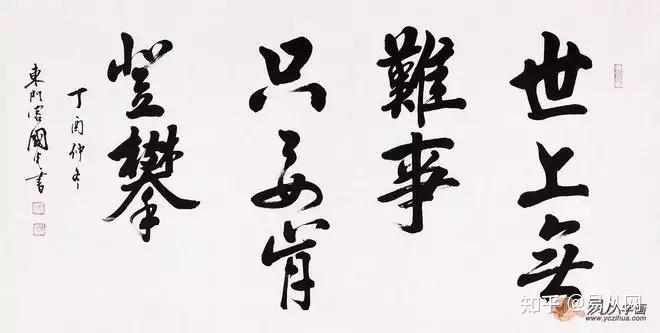 世上無
難事
只要肯
登攀
丁酉仲冬
東門客國書
知乎 @易从网
易从字画
www.yczihua.com